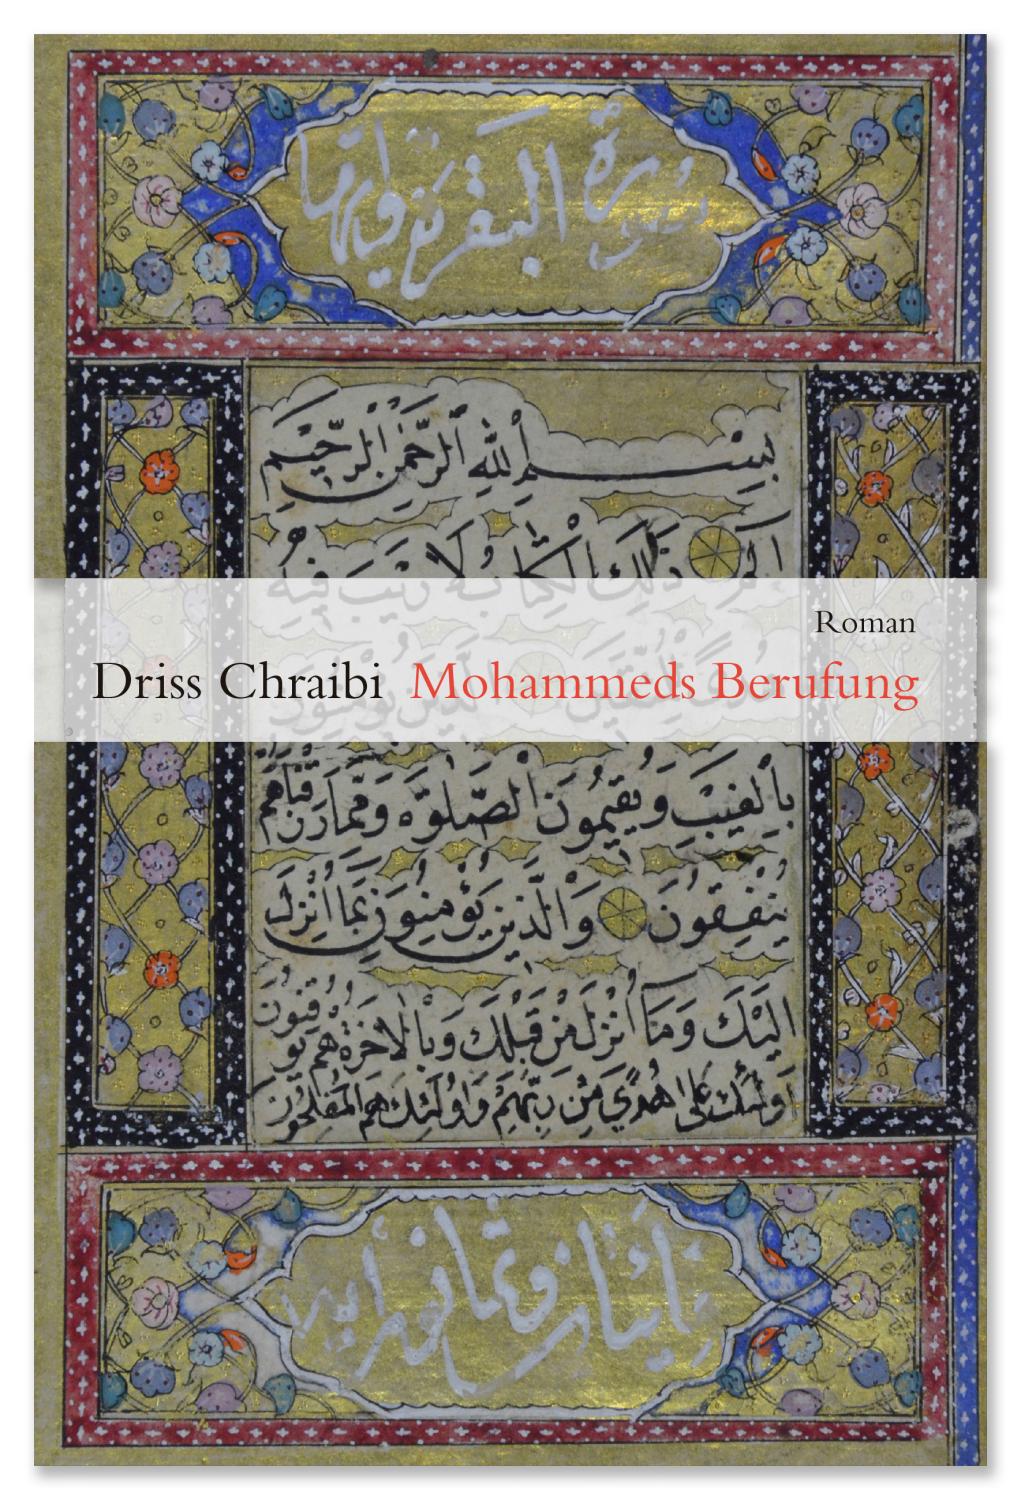 سورة البقرة وايتها
بِسْمِ اللهِ الرَّحْمٰنِ الرَّحِيْمِ
الم ذٰلِكَ الْكِتَابُ لَا رَيْبَ فِيْهِ
Roman
Driss Chraibi Mohammeds Berufung
بِالْغَيْبِ وَيُقِيْمُوْنَ الصَّلٰوةَ وَمِمَّا رَزَقْنَاهُمْ
يُنْفِقُوْنَ وَالَّذِيْنَ يُؤْمِنُوْنَ بِمَا اُنْزِلَ
اِلَيْكَ وَمَا اُنْزِلَ مِنْ قَبْلِكَ وَبِالْاٰخِرَةِ هُمْ يُوْقِنُوْنَ
اُولٰئِكَ عَلٰى هُدًى مِنْ رَبِّهِمْ وَاُولٰئِكَ هُمُ الْمُفْلِحُوْنَ